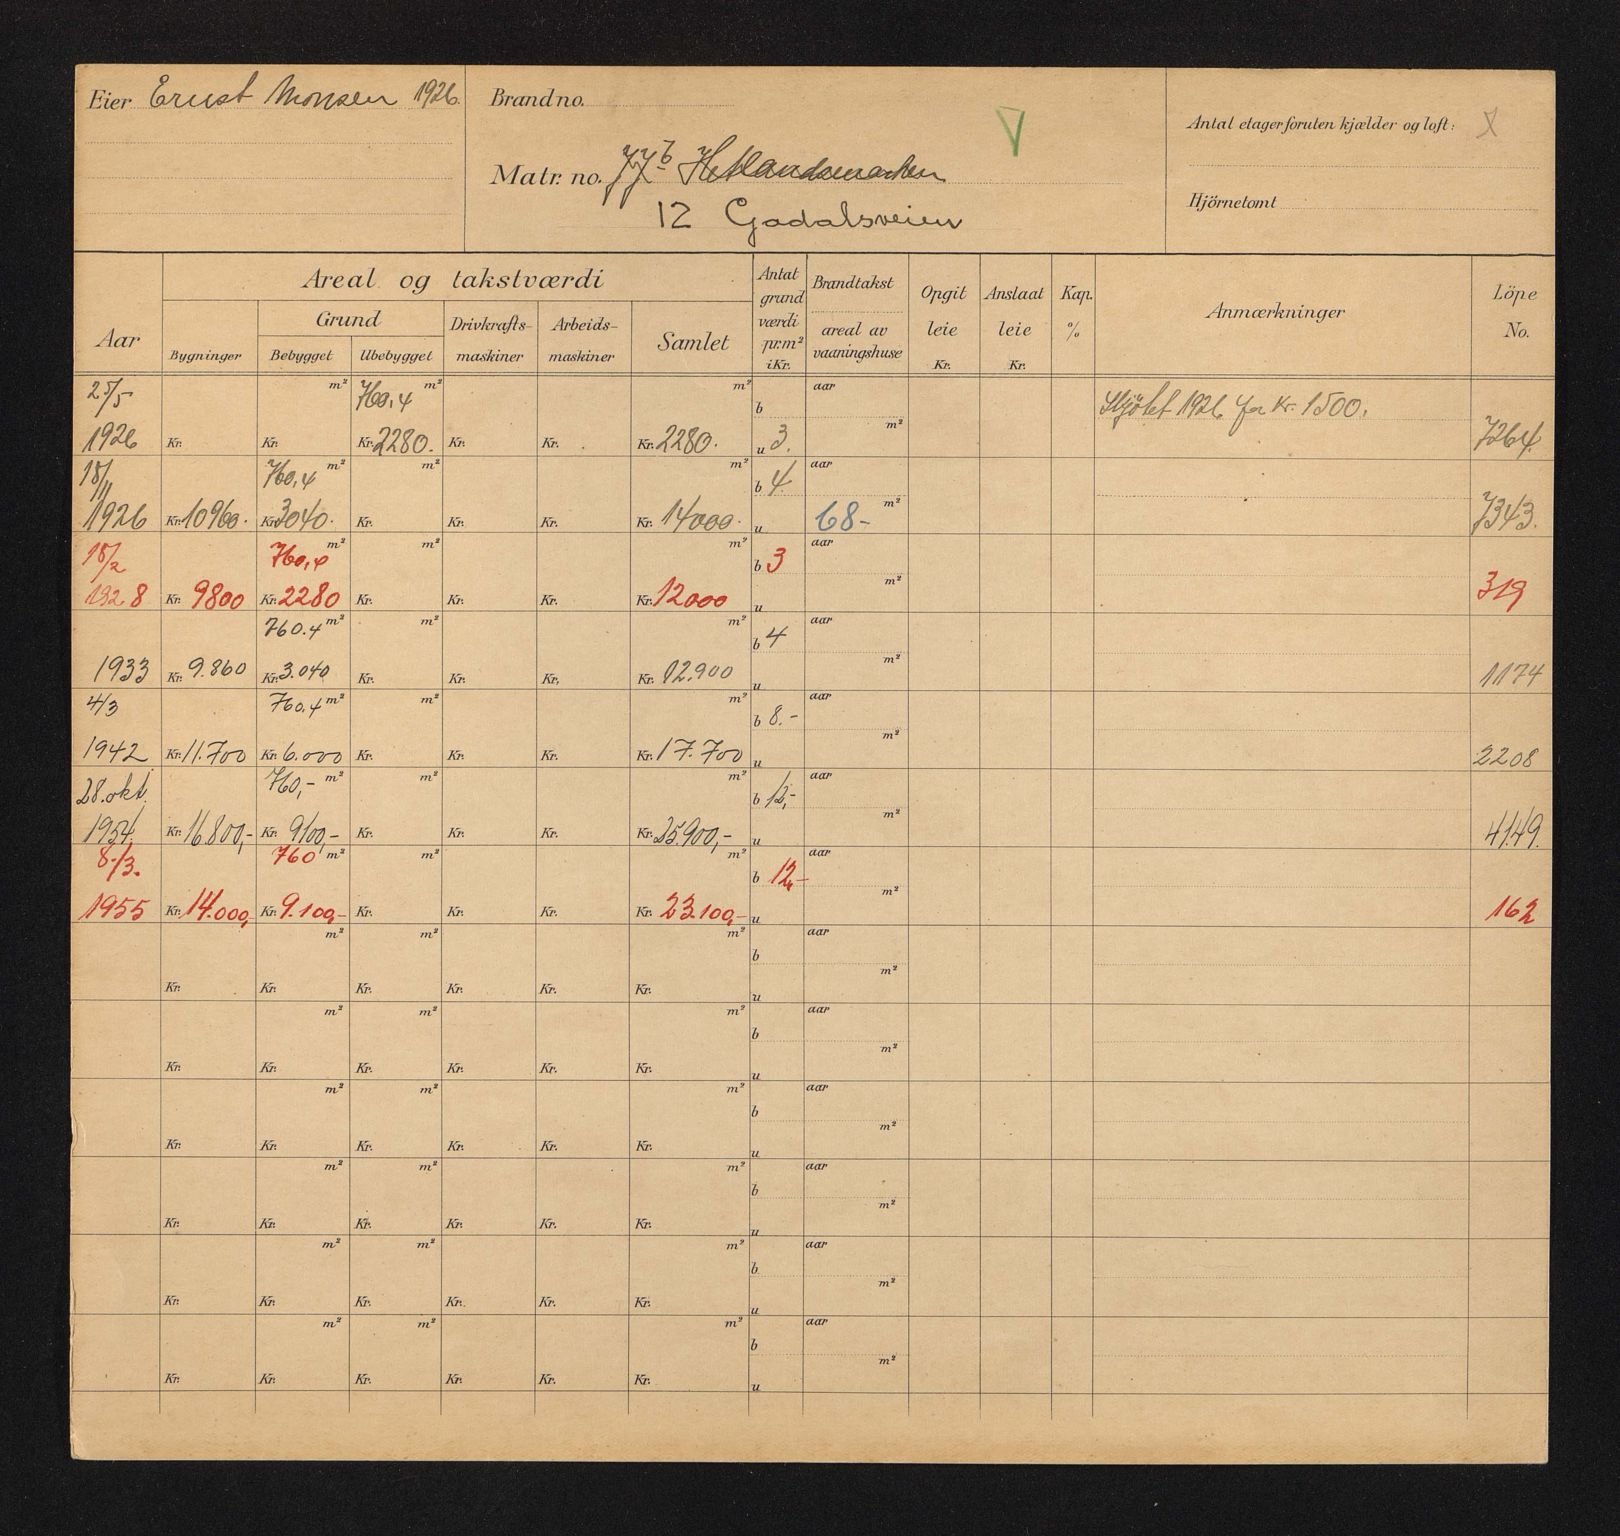 Eier Ernst Monsen 1926.
Brand no.
Antal etager foruten kjælder og loft:
Matr. no. 77b Hetlandsmarken
12 Godalsveien
Hjörnetomt
Areal og takstværdi
Aar
Bygninger
Grund
Bebygget
Ubebygget
Drivkrafts-
maskiner
Arbeids-
maskiner
Samlet
Antat
grund
værdi
pr.m²
i Kr.
Brandtakst
areal av
vaaningshuse
Opgit
leie
Kr.
Anslaat
leie
Kr.
Kap.
%
Anmærkninger
Löpe
No.
25/5 m² 760,4 m² m² b aar Skjøtet 1926 for Kr. 1500.
1926 Kr. Kr. Kr. 2280. Kr. Kr. Kr. 2280. u 3. m² 7264.
18/11 760,4 m² m² m² b 4. aar
1926 Kr. 10960. Kr. 3040. Kr. Kr. Kr. Kr. 14000. u 68- m² 7343.
18/2 760,4 m² m² m² b 3 aar
1928 Kr. 9800 Kr. 2280 Kr. Kr. Kr. Kr. 12000 u m² 319
760.4 m² m² m² b 4 aar
1933 Kr. 9.860 Kr. 3.040 Kr. Kr. Kr. Kr. 12.900 u m² 1174
4/3 760.4 m² m² m² b 8.- aar
1942 Kr. 11.700 Kr. 6.000 Kr. Kr. Kr. Kr. 17.700 u m² 2208
28.okt. 760,- m² m² m² b 12,- aar
1954. Kr. 16.800,- Kr. 9100,- Kr. Kr. Kr. Kr. 25.900,- u m² 4149.
8./3. 760 m² m² m² b 12,- aar
1955 Kr. 14.000,- Kr. 9.100,- Kr. Kr. Kr. Kr. 23.100,- u m² 162
m² m² m² b aar
Kr. Kr. Kr. Kr. Kr. Kr. u m²
m² m² m² b aar
Kr. Kr. Kr. Kr. Kr. Kr. u m²
m² m² m² b aar
Kr. Kr. Kr. Kr. Kr. Kr. u m²
m² m² m² b aar
Kr. Kr. Kr. Kr. Kr. Kr. u m²
m² m² m² b aar
Kr. Kr. Kr. Kr. Kr. Kr. u m²
m² m² m² b aar
Kr. Kr. Kr. Kr. Kr. Kr. u m²